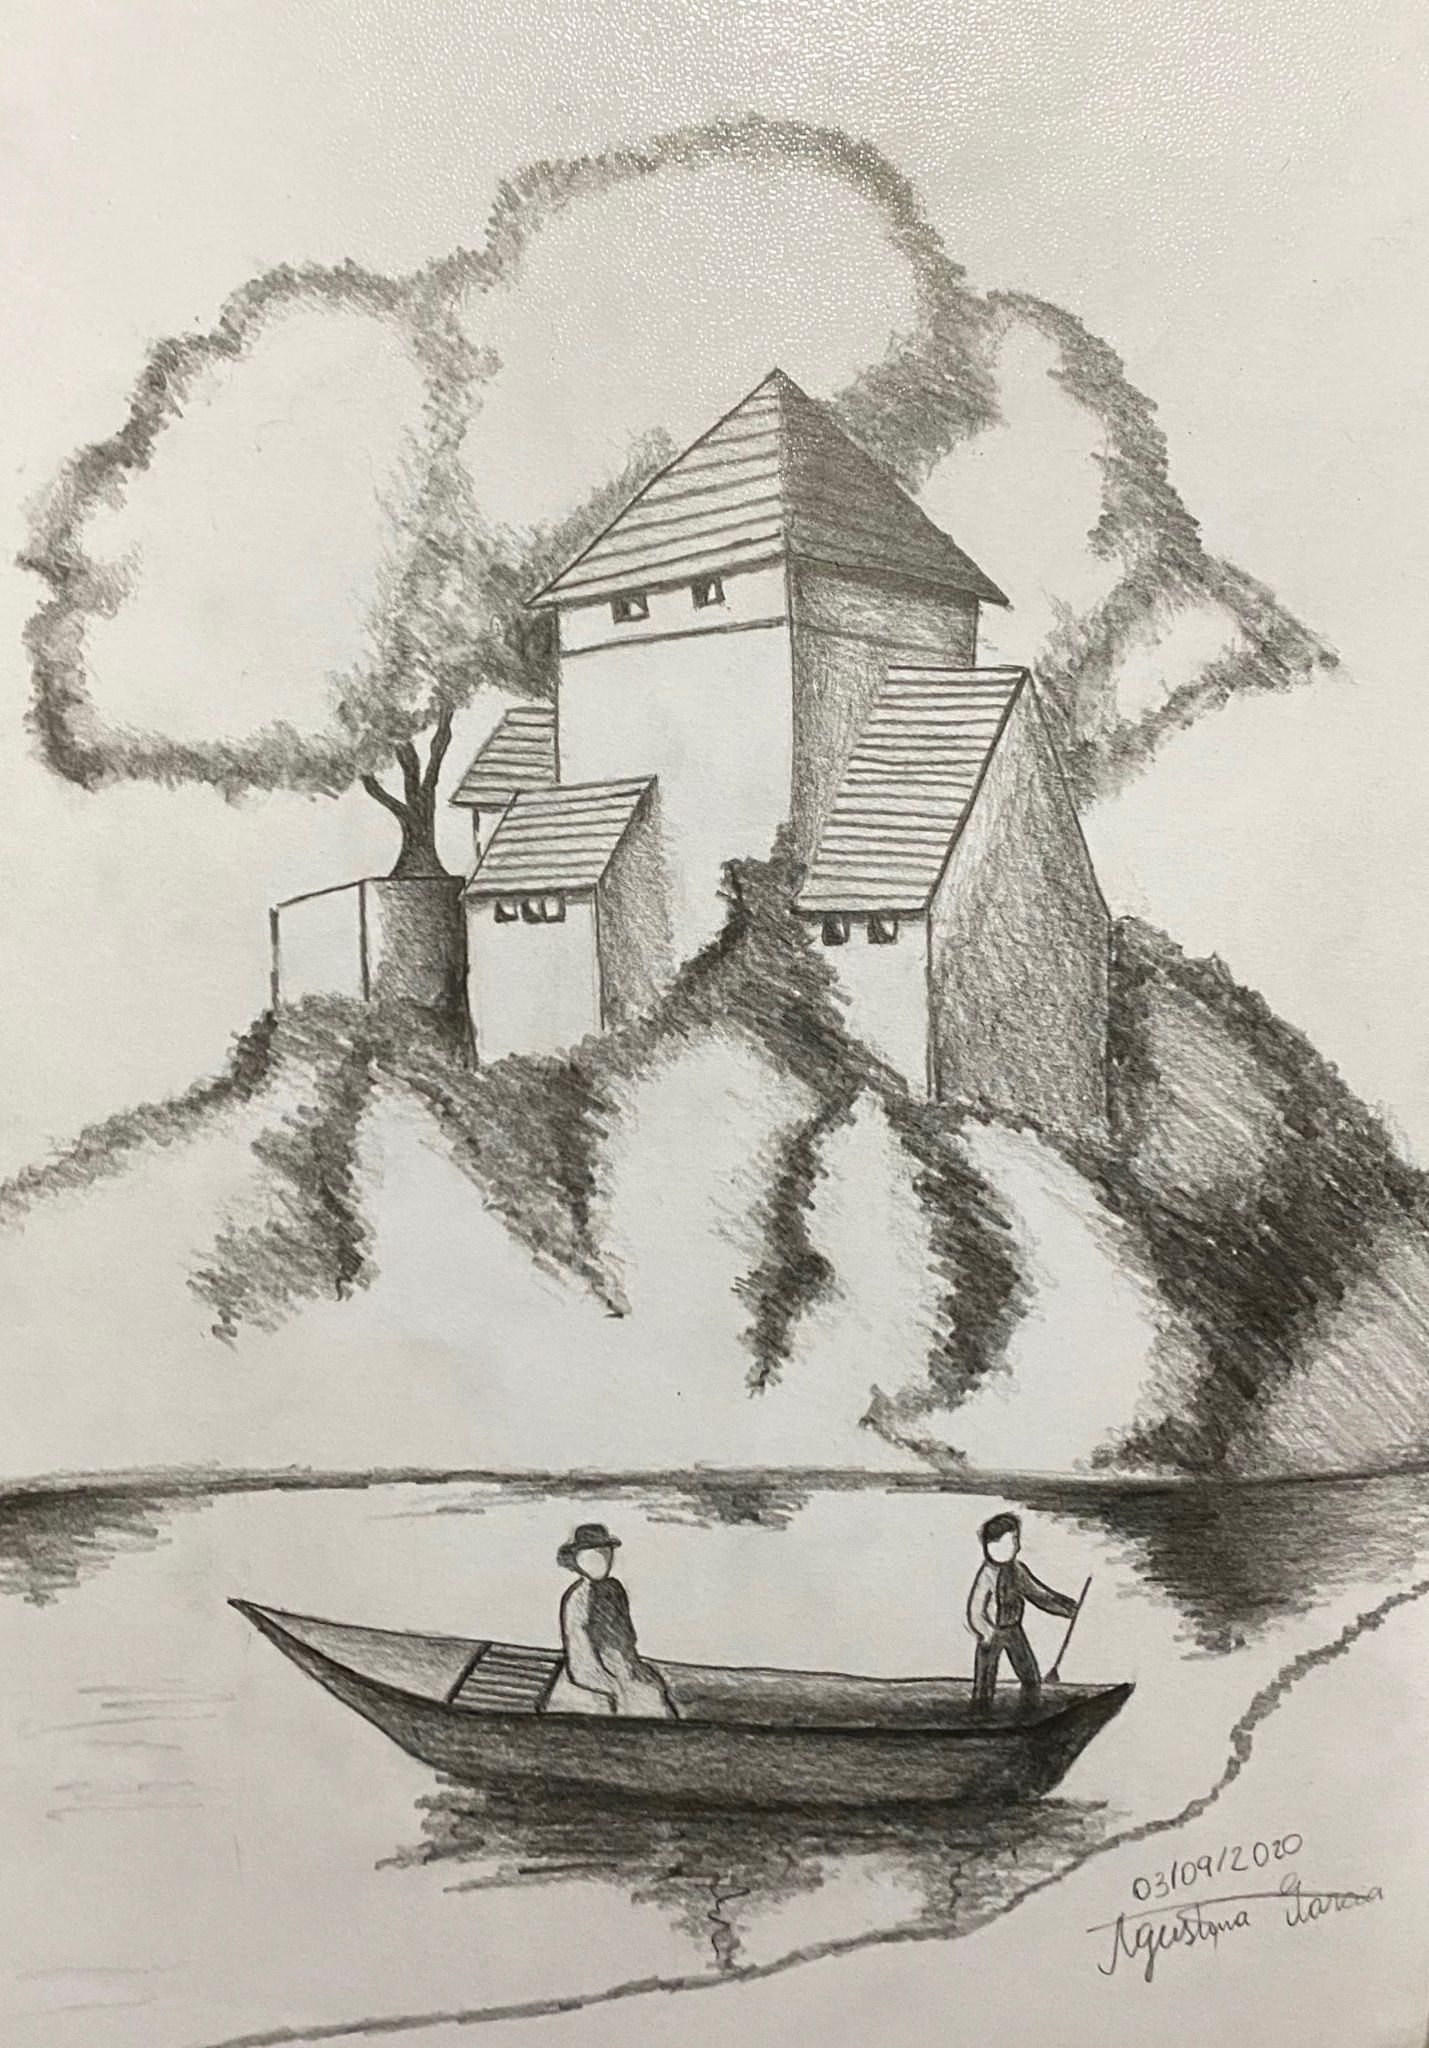 03/09/2020
Agustina Garcia